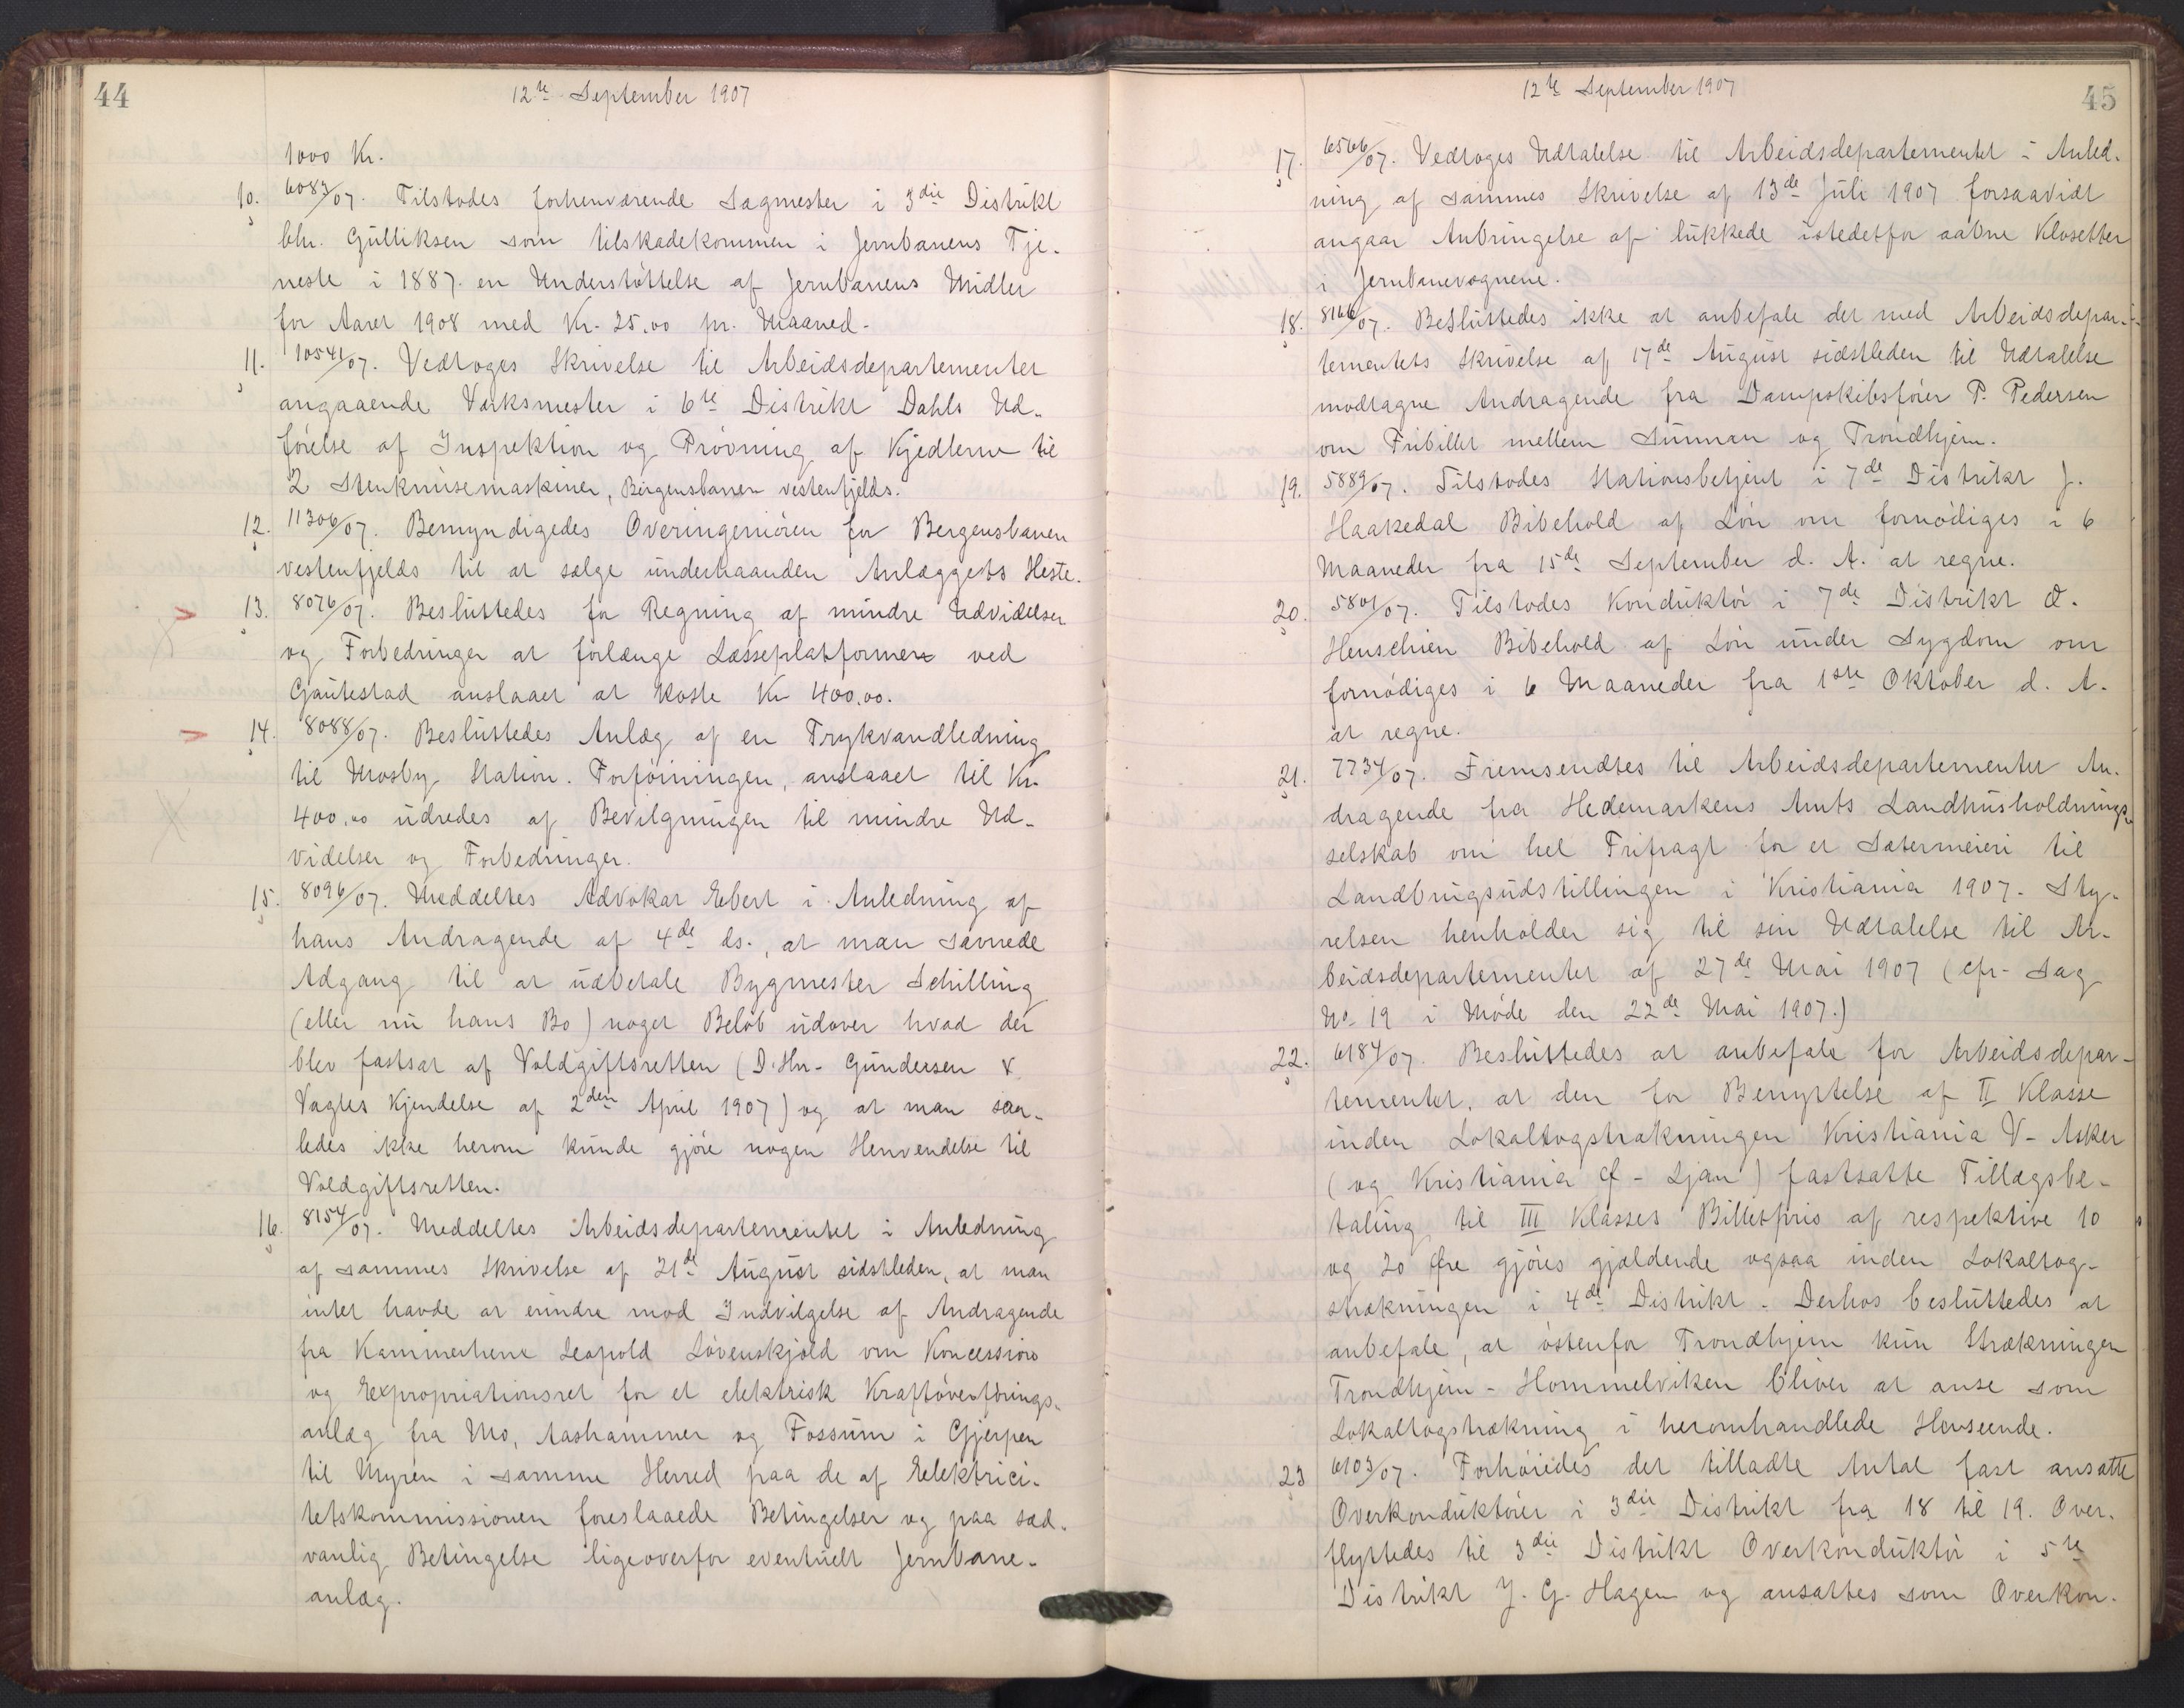 44
12te September 1907
1000 Kr.
10. 6083/07. Tilstodes forhenværende Sagmester i 3die Distrikt
Chr. Gulliksen som tilskadekommen i Jernbanens Tje-
neste i 1887 en Understøttelse af Jernbanens Midler
for Aaret 1908 med Kr. 25.00 pr. Maaned.
11. 10541/07. Vedtoges Skrivelse til Arbeidsdepartementet
angaaende Værksmester i 6te Distrikt Dahls Ud-
førelse af Inspektion og Prøvning af Kjedlerne til
2 Stenknusemaskiner, Bergensbanen vestenfjelds.
12. 11306/07. Bemyndigedes Overingeniøren for Bergensbanen
vestenfjelds til at sælge underhaanden Anlæggets Heste.
13. 8076/07. Besluttedes for Regning af mindre Udvidelser
og Forbedringer at forlænge Læsseplatformen ved
Gautestad anslaaet at koste Kr 400.00.
14. 8088/07. Besluttedes Anlæg af en Trykvandledning
til Mosby Station. Forføiningen, anslaaet til Kr.
400.00 udredes af Bevilgningen til mindre Ud-
videlser og Forbedringer.
15. 8096/07. Meddeltes Advokat Ebert i Anledning af
hans Andragende af 4de ds., at man savnede
Adgang til at udbetale Bygmester Schilling
(eller nu hans Bo) noget Beløb udover hvad der
blev fastsat af Voldgiftsretten (D'Hrr. Gundersen &
Vagtes Kjendelse af 2den April 1907) og at man saa-
ledes ikke herom kunde gjøre nogen Henvendelse til
Voldgiftsretten.
16. 8154/07. Meddeltes Arbeidsdepartementet i Anledning
af sammes Skrivelse af 21de August sidstleden, at man
intet havde at erindre mod Indvilgelse af Andragende
fra Kammerherre Leopold Løvenskjold om Koncession
og Expropriationsret for et elektrisk Kraftoverførings-
anlæg fra Mo, Aashammer og Fossum i Gjerpen
til Myren i samme Herred paa de af Elektrici-
tetskommissionen foreslaaede Betingelser og paa sæd-
vanlig Betingelse ligeoverfor eventuelt Jernbane-
anlæg.
12te September 1907
45
17. 6566/07. Vedtoges Udtalelse til Arbeidsdepartementet i Anled-
ning af sammes Skrivelse af 13de Juli 1907 forsaavidt
angaar Anbringelse af lukkede istedetfor aabne Klosetter
i Jernbanevognene.
18. 8166/07. Besluttedes ikke at anbefale det med Arbeidsdepar-
tementets Skrivelse af 17de August sidstleden til Udtalelse
modtagne Andragende fra Dampskibsfører P. Pedersen
om Fribillet mellem Sunnan og Trondhjem.
19. 5889/07. Tilstodes Stationsbetjent i 7de Distrikt J.
Haakedal Bibehold af Løn om fornødiges i 6
Maaneder fra 15de September d. A. at regne.
20. 5801/07. Tilstodes Konduktør i 7de Distrikt O.
Henschien Bibehold af Løn under Sygdom om
fornødiges i 6 Maaneder fra 1ste Oktober d. A.
at regne.
21. 7734/07. Fremsendtes til Arbeidsdepartementet An-
dragende fra Hedemarkens Amts Landhusholdnings-
selskab om hel Frifragt for et Sætermeieri til
Landbrugsudstillingen i Kristiania 1907. Sty-
relsen henholder sig til sin Udtalelse til Ar-
beidsdepartementet af 27de Mai 1907 (cfr. Sag
No. 19 i Møde den 22de Mai 1907.)
22. 6184/07. Besluttedes at anbefale for Arbeidsdepar-
tementet, at den for Benyttelse af II Klasse
inden Lokaltogstrækningen Kristiania V - Asker
(og Kristiania Ø - Ljan) fastsatte Tillægsbe-
taling til III Klasses Billetpris af respektive 10
og 20 Øre gjøres gjældende ogsaa inden Lokaltog-
strækningen i 4de Distrikt. Derhos besluttedes at
anbefale, at østenfor Trondhjem kun Strækningen
Trondhjem - Hommelviken bliver at anse som
Lokaltogstrækning i heromhandlede Henseende.
23 6103/07. Forhøiedes det tilladte Antal fast ansatte
Overkonduktører i 3die Distrikt fra 18 til 19. Over-
flyttedes til 3die Distrikt Overkonduktør i 5te
Distrikt J. G. Hagen og ansattes som Overkon-